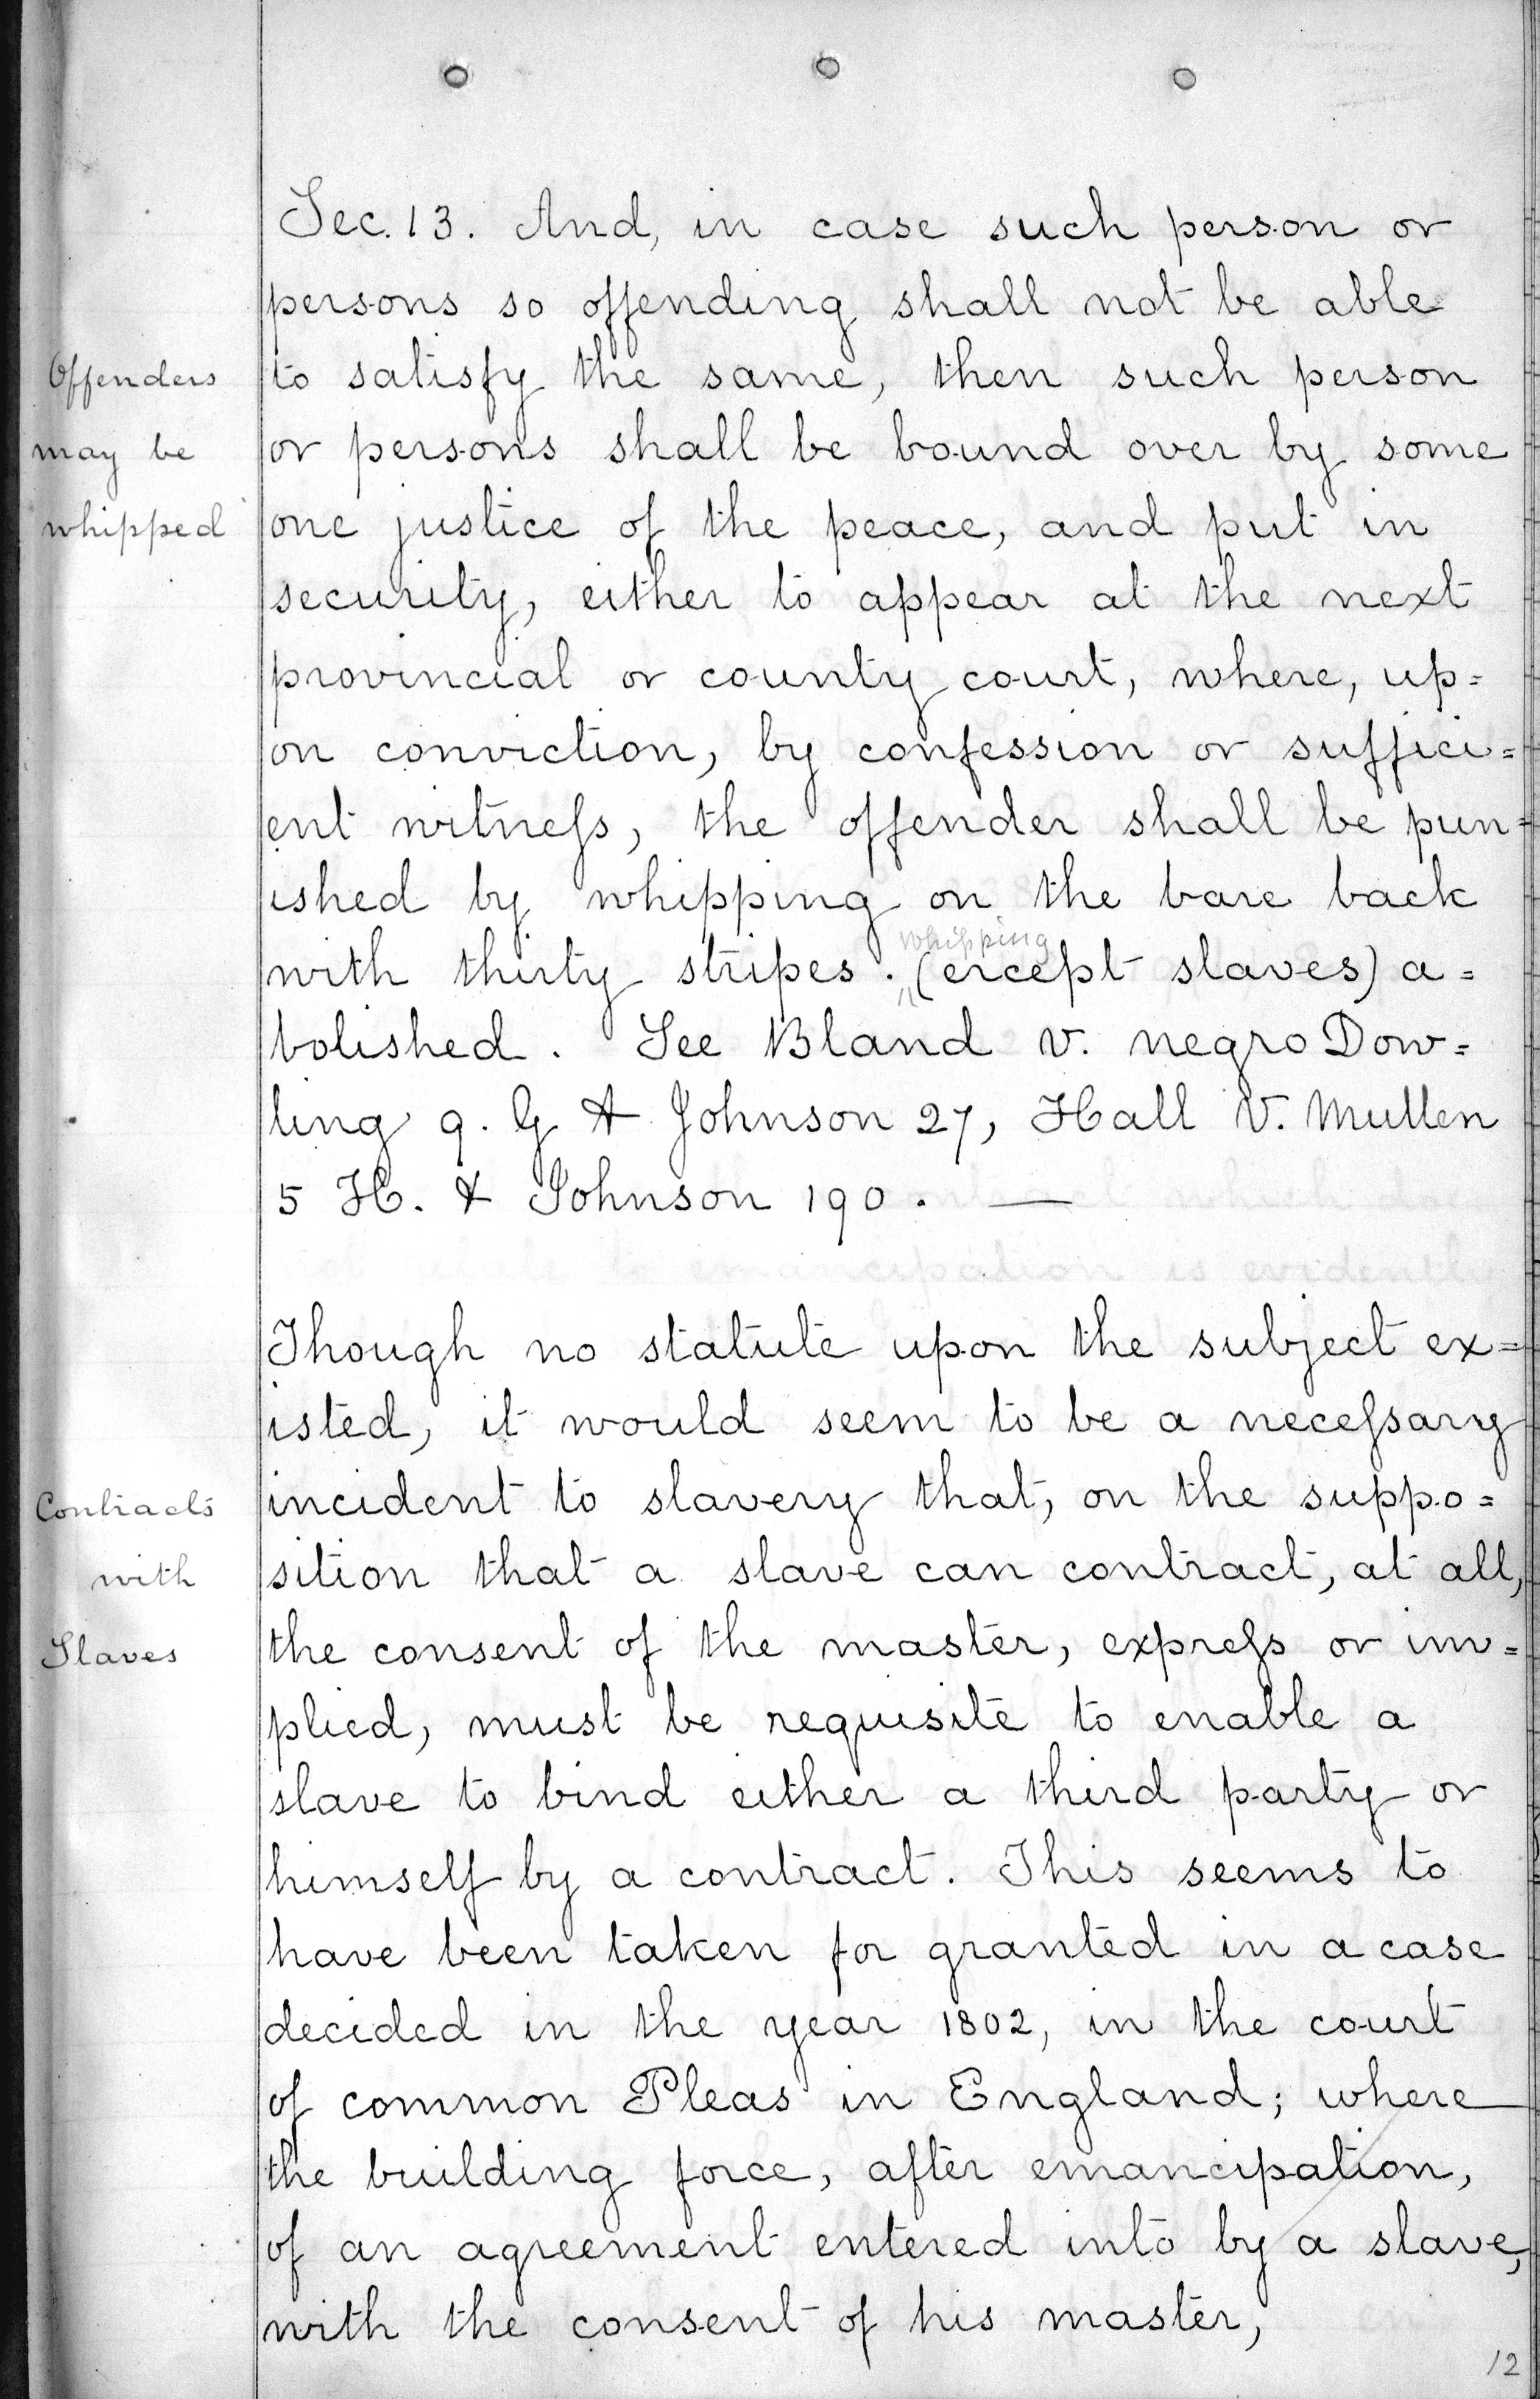 Sec. 13. And, in case such person or
persons so offending shall not be able
Offenders
to satisfy the same, then such person
may be
or persons shall be bound over by some
whipped
one justice of the peace, and put in
security, either to appear at the next
provincial or county court, where, up=
on conviction, by confession or suffici=
ent witneſs, the offender shall be pun=
ished by whipping on the bare back
whipping
with thirty stripes. (ercept slaves) a=
bolished. See Bland v. negro Dow=
ling 9. G & Johnson 27, Hall V. Mullen
5 H. & Johnson 190. —
Though no statute upon the subject ex=
isted, it would seem to be a neceſsary
Contracts
incident to slavery that, on the suppo=
with
sition that a slave can contract, at all,
Slaves
the consent of the master, expreſs or im=
plied, must be requisite to enable a
slave to bind either a third party or
himself by a contract. This seems to
have been taken for granted in a case
decided in the year 1802, in the court
of common Pleas in England; where
the building force, after emancipation,
of an agreement entered into by a slave,
with the consent of his master,
12